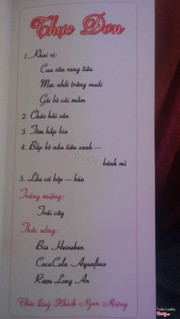 Thực Đơn
1. Khai vị:
Cua sữa rang tiêu
Mực nhồi trứng muối
Gỏi bò cải mầm
2. Chéo hải sản
3. Tôm hấp bia
4. Bắp bò nấu tiêu xanh –
bánh mì
5. Lẩu cá bớp – bún
Tráng miệng:
Trái cây
Thức uống:
Bia Heineken
CocaCola - Aquafina
Rượu Long An
Chúc Quý Khách Ngon Miệng